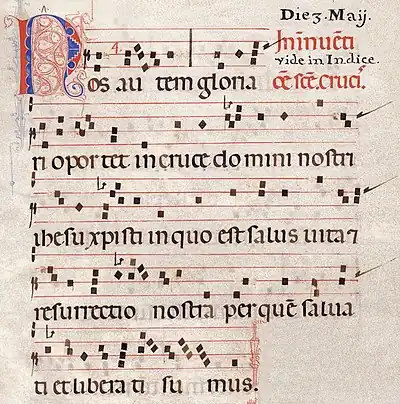 Die 3. Maij.
In inuẽti
vide in Indice.
Nos au tem gloria
cẽ scẽ. cruci.
ri opor tet in cruce do mini nostri
ihesu xpisti in quo est salus uita ⁊
resurrectio nostra per quẽ salua
ti et libera ti su mus.